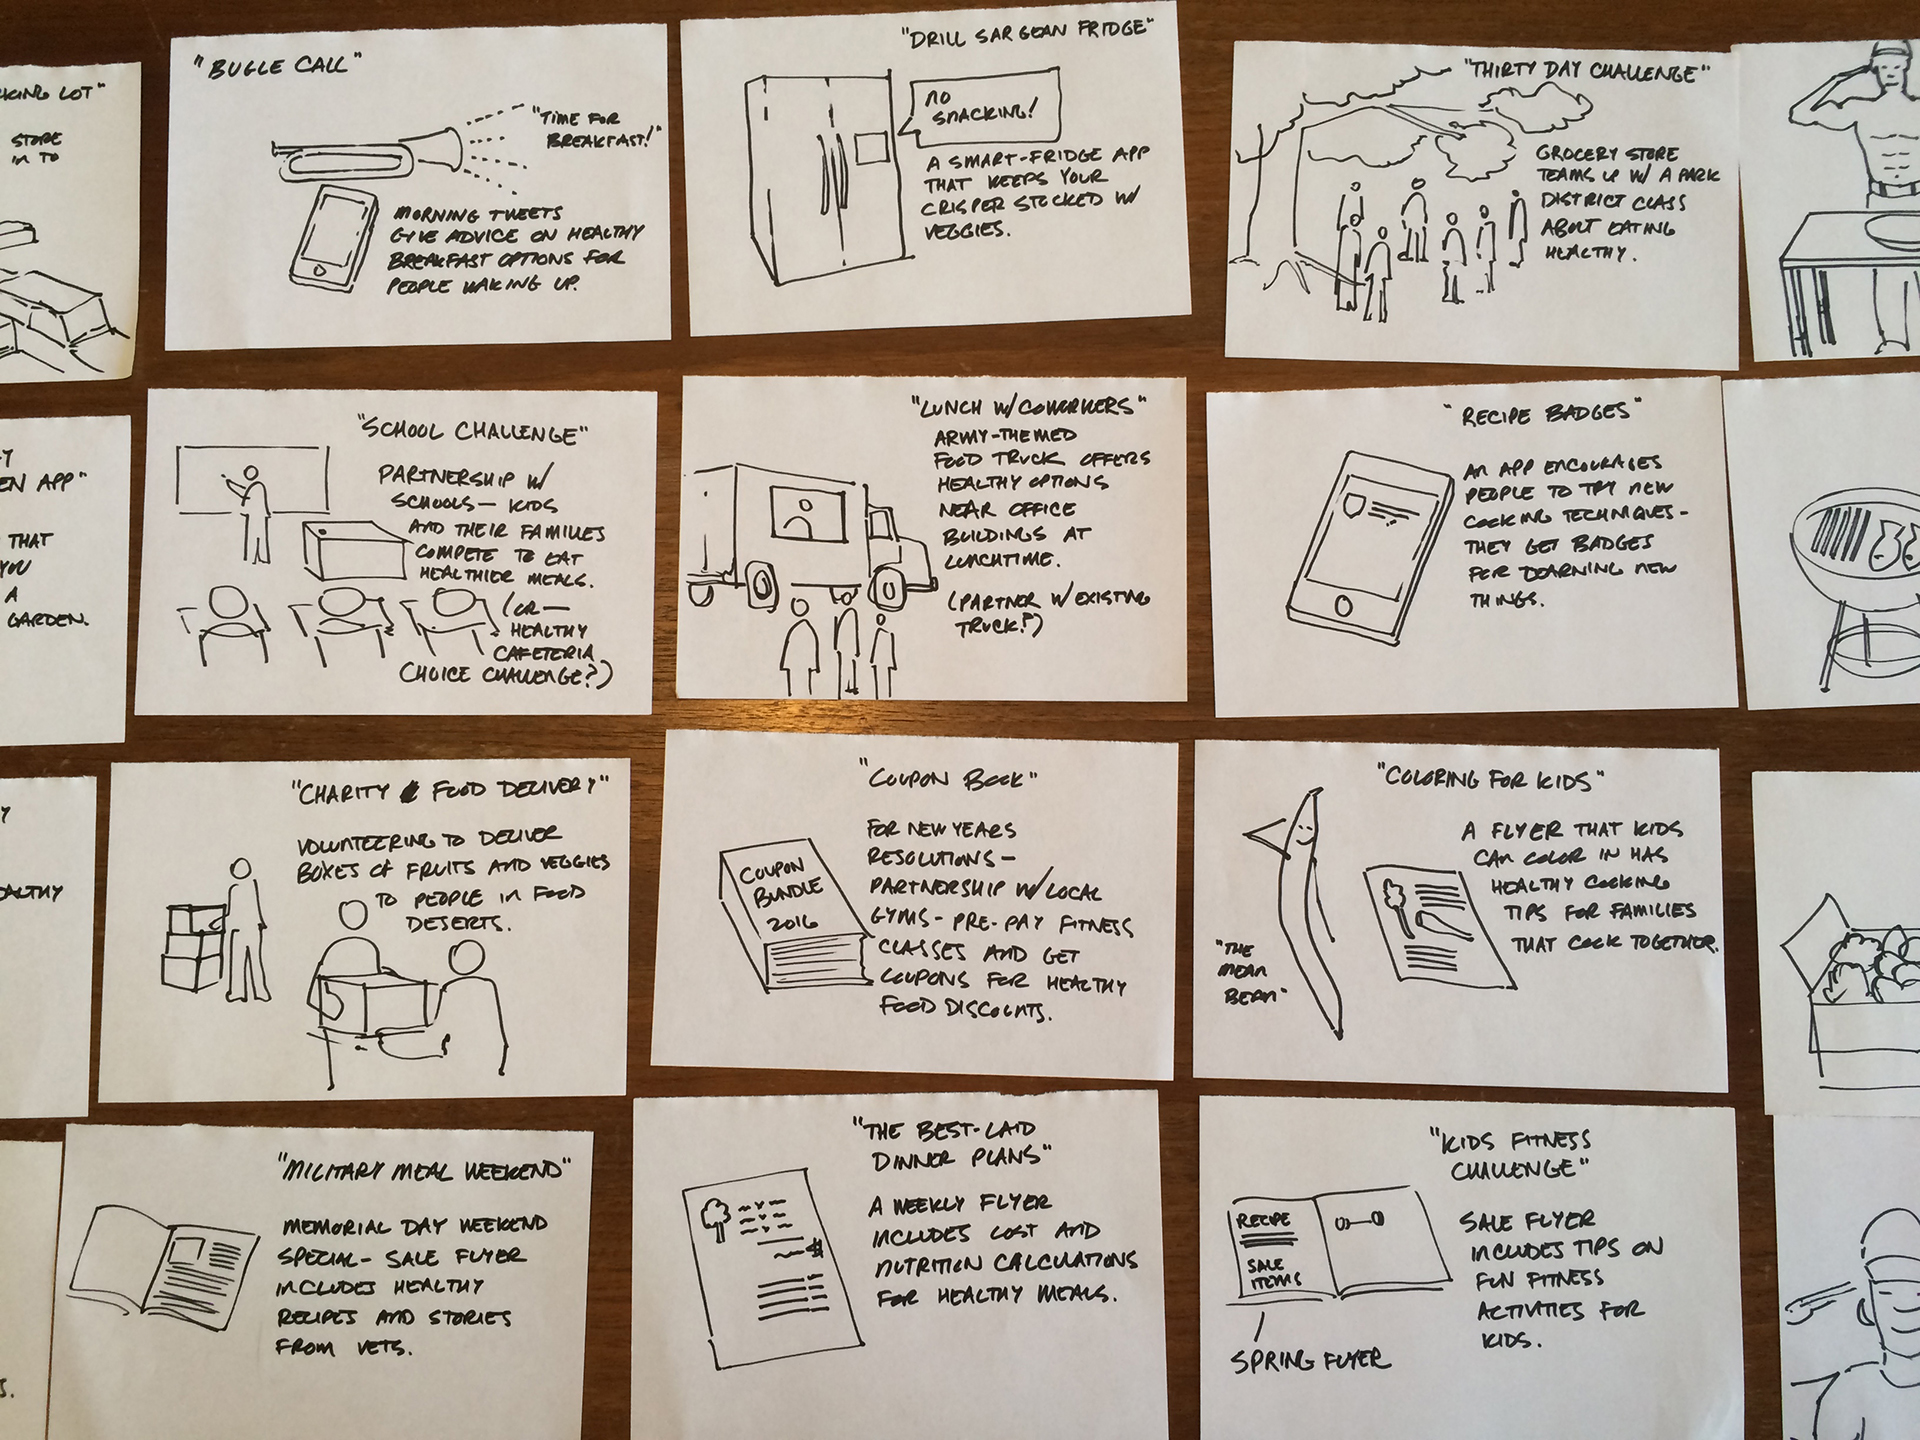 "BUGLE CALL"
"TIME FOR
BREAKFAST!"
MORNING TWEETS
GIVE ADVICE ON HEALTHY
BREAKFAST OPTIONS FOR
PEOPLE WAKING UP.
"DRILL SARGEAN FRIDGE"
NO
SNACKING!
A SMART-FRIDGE APP
THAT KEEPS YOUR
CRISPER STOCKED W/
VEGGIES.
"THIRTY DAY CHALLENGE"
GROCERY STORE
TEAMS UP W/ A PARK
DISTRICT CLASS
ABOUT EATING
HEALTHY.
KING LOT"
STORE
IN TO
"SCHOOL CHALLENGE"
PARTNERSHIP W/
SCHOOLS— KIDS
AND THEIR FAMILIES
COMPETE TO EAT
HEALTHIER MEALS.
(OR—
HEALTHY
CAFETERIA
CHOICE CHALLENGE?)
"LUNCH W/COWORKERS"
ARMY-THEMED
FOOD TRUCK OFFERS
HEALTHY OPTIONS
NEAR OFFICE
BUILDINGS AT
LUNCHTIME.
(PARTNER W/EXISTING
TRUCK?)
"RECIPE BADGES"
AN APP ENCOURAGES
PEOPLE TO TRY NEW
COOKING TECHNIQUES-
THEY GET BADGES
FOR LEARNING NEW
THINGS.
Y
EN APP"
THAT
YOU
A
GARDEN.
"CHARITY FOOD DELIVERY"
VOLUNTEERING TO DELIVER
BOXES OF FRUITS AND VEGGIES
TO PEOPLE IN FOOD
DESERTS.
"COUPON BOOK"
COUPON
BUNDLE
2016
FOR NEW YEARS
RESOLUTIONS—
PARTNERSHIP W/LOCAL
GYMS- PRE-PAY FITNESS
CLASSES AND GET
COUPONS FOR HEALTHY
FOOD DISCOUNTS.
"COLORING FOR KIDS"
A FLYER THAT KIDS
CAN COLOR IN HAS
HEALTHY COOKING
TIPS FOR FAMILIES
THAT COOK TOGETHER.
"THE
MEAN
BEAN"
Y
EALTHY
"MILITARY MEAL WEEKEND"
MEMORIAL DAY WEEKEND
SPECIAL- SALE FLYER
INCLUDES HEALTHY
RECIPES AND STORIES
FROM VETS.
"THE BEST-LAID
DINNER PLANS"
$
A WEEKLY FLYER
INCLUDES COST AND
NUTRITION CALCULATIONS
FOR HEALTHY MEALS.
"KIDS FITNESS
CHALLENGE"
RECIPE
SALE
ITEMS
SPRING FLYER
SALE FLYER
INCLUDES TIPS ON
FUN FITNESS
ACTIVITIES FOR
KIDS.
S.